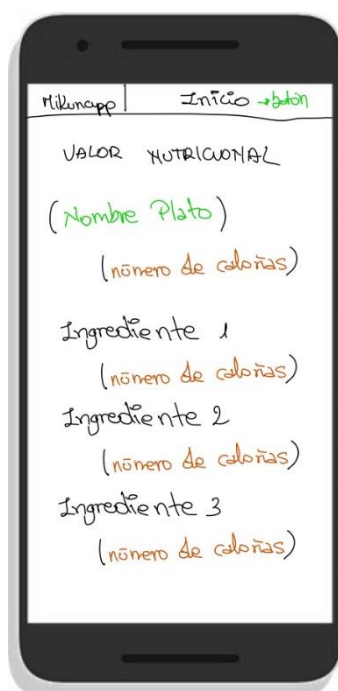 Mikunapp | Inicio → botón
VALOR NUTRICIONAL
(Nombre Plato)
(número de calorías)
Ingrediente 1
(número de calorías)
Ingrediente 2
(número de calorías)
Ingrediente 3
(número de calorías)